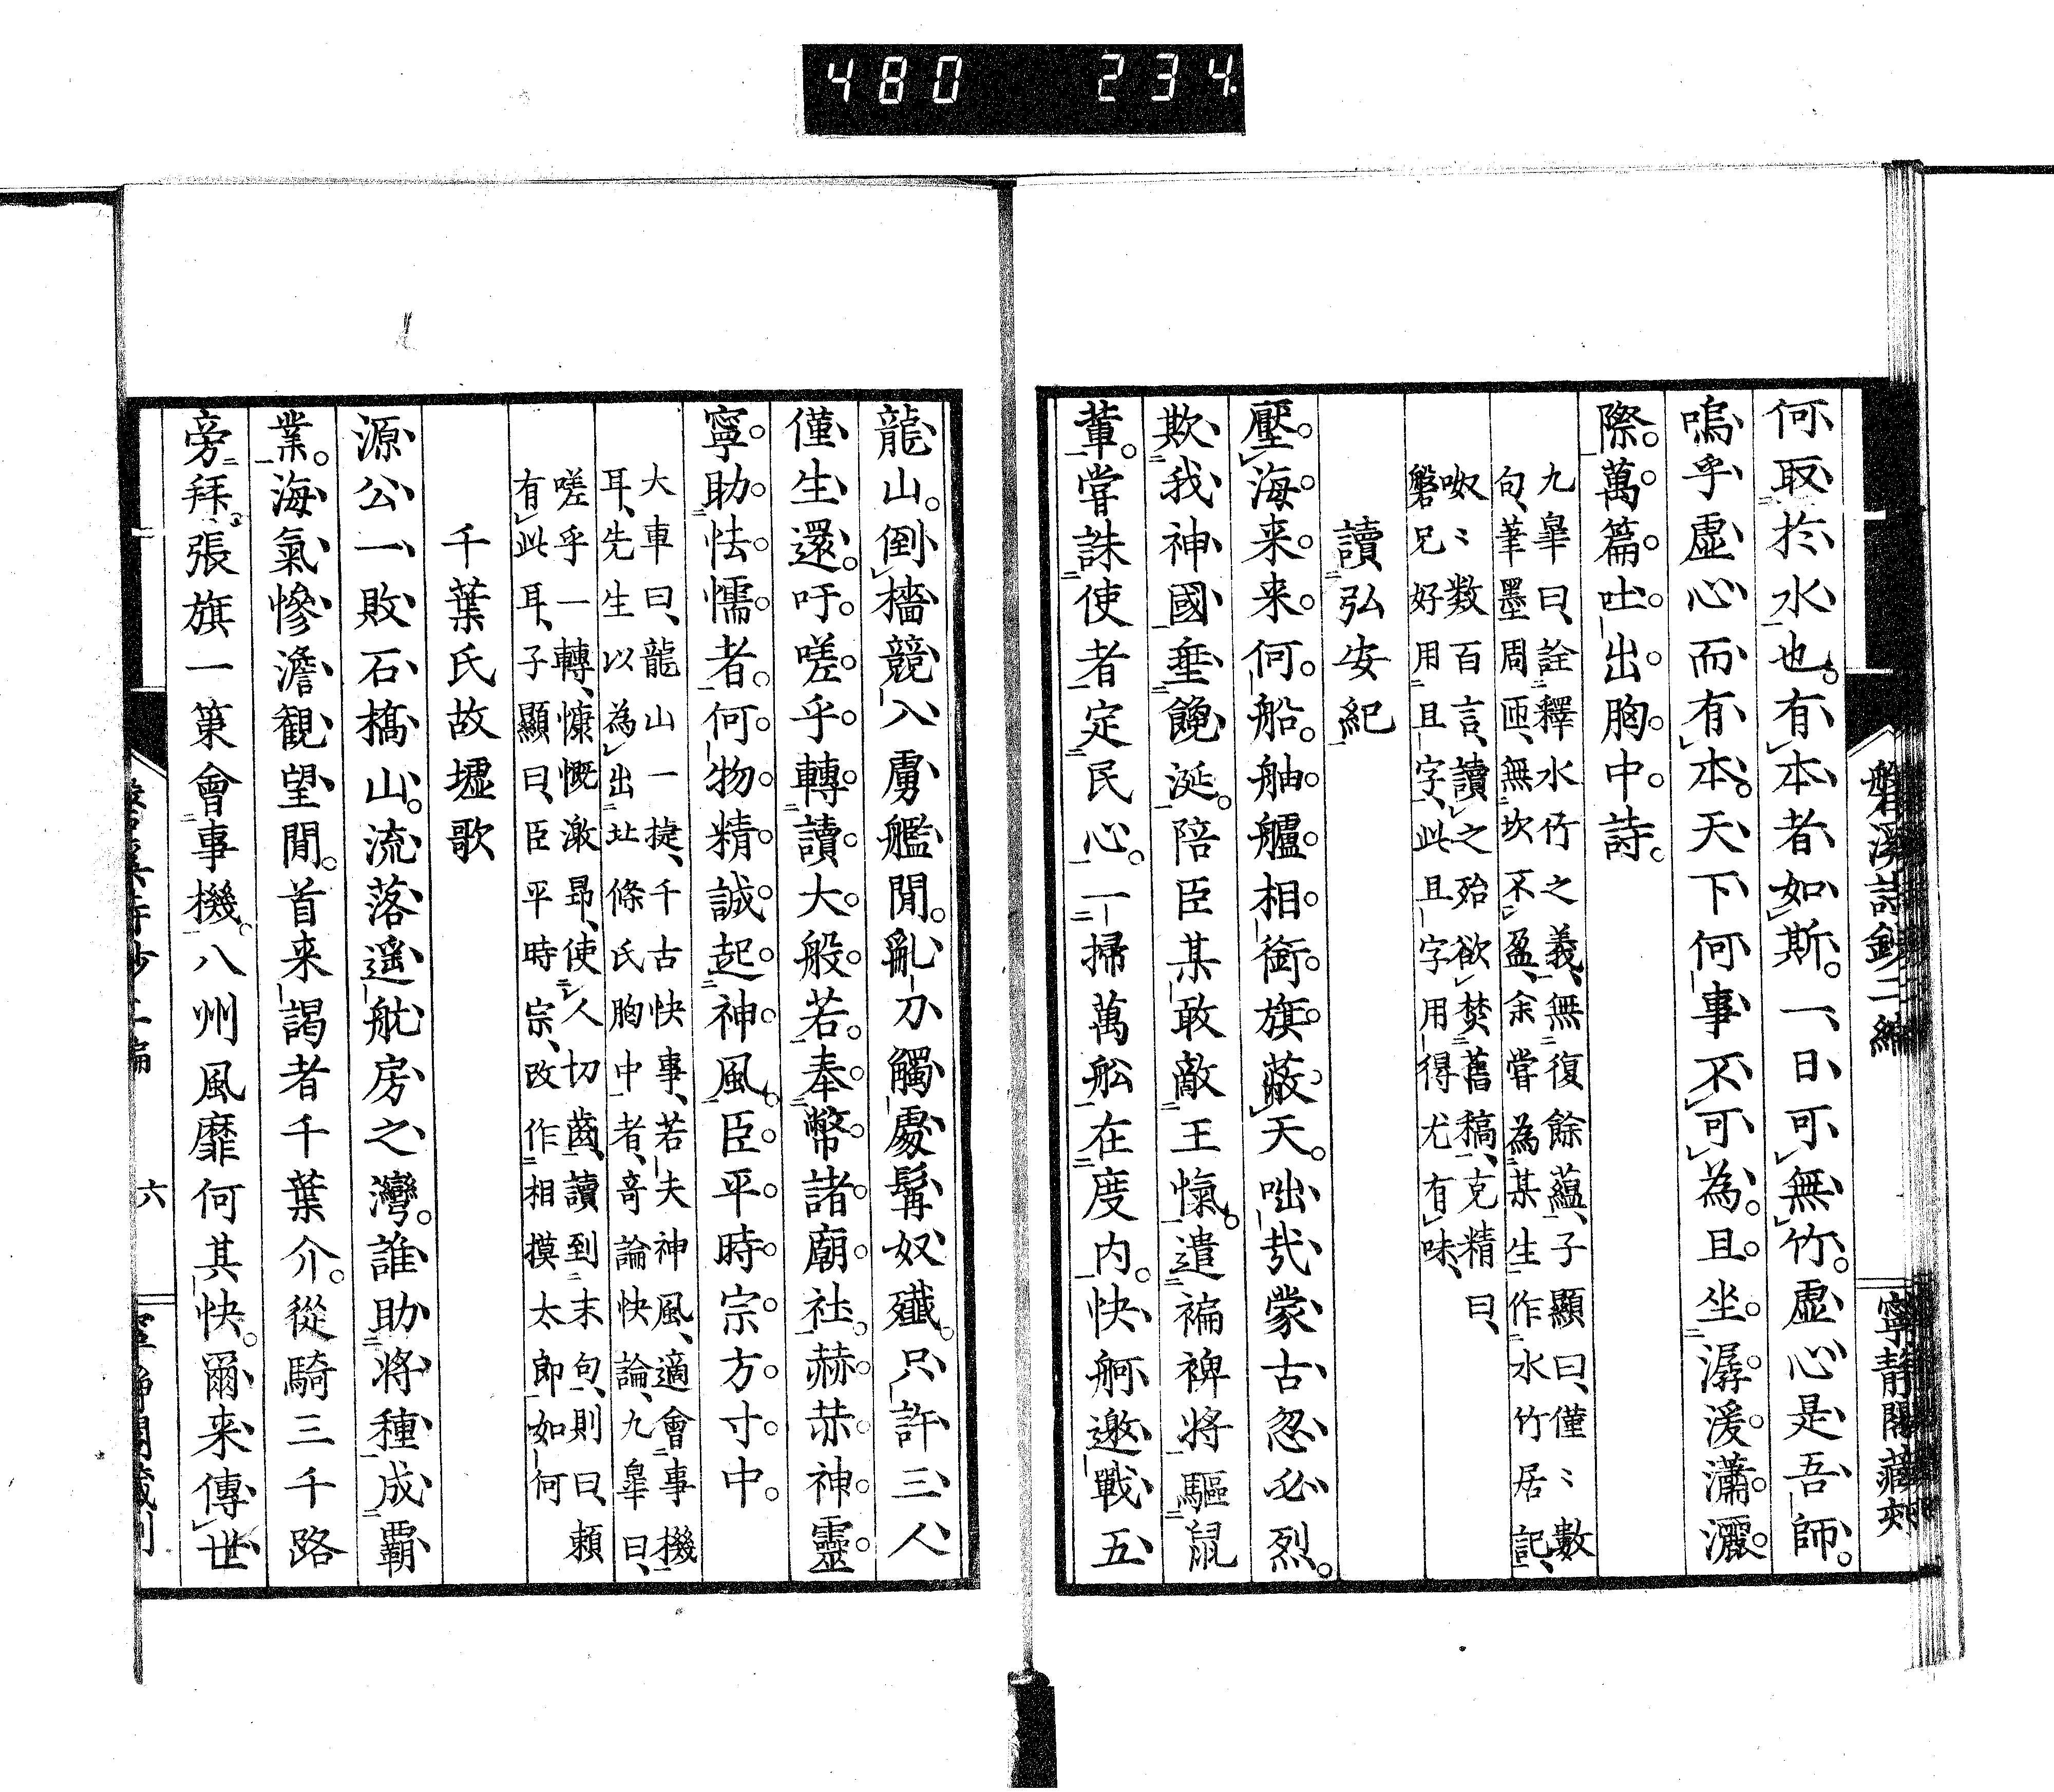 480 234.
磐溪詩鈔二編
寧靜閣藏
何取於水也。有本者如斯。一日可無竹。虛心是吾師。
嗚乎虛心而有本。天下何事不可為。且坐潺湲瀟灑
際。萬篇吐出胸中詩。
九皐曰、詮釋水竹之義、無復餘蘊、子顯曰、僅〻數
句、筆墨周匝、無坎不盈、余嘗為某生作水竹居記、
呶〻数百言、讀之殆欲焚舊稿、克精曰、
磐兄好用且字、此且字用得尤有味、
讀弘安紀
壓海来来何船。舳艫相銜旗蔽天。咄哉蒙古忽必烈。
欺我神國垂饞涎。陪臣某敢敵王愾。遣褊裨將驅鼠
輩。嘗誅使者定民心。一掃萬舩在度内。快舸邀戰五
龍山。倒檣競入虜艦間。亂刀觸處髯奴殲。只許三人
僅生還。吁嗟乎轉讀大般若。奉幣諸廟社。赫赫神靈
寧助怯懦者。何物精誠起神風。臣平時宗方寸中。
大車曰、龍山一捷、千古快事、若夫神風、適會事機
耳、先生以為出北條氏胸中者、奇論快論、九皐曰、
嗟乎一轉、慷慨激昂、使人切齒、讀到末句、則曰、賴
有此耳、子顯曰、臣平時宗、改作相摸太郎如何
千葉氏故墟歌
源公一敗石橋山。流落遥航房之灣。誰助將種成覇
業。海氣慘澹觀望間。首来謁者千葉介。從騎三千路
旁拜。張旗一策會事機。八州風靡何其快。爾来傳世
六